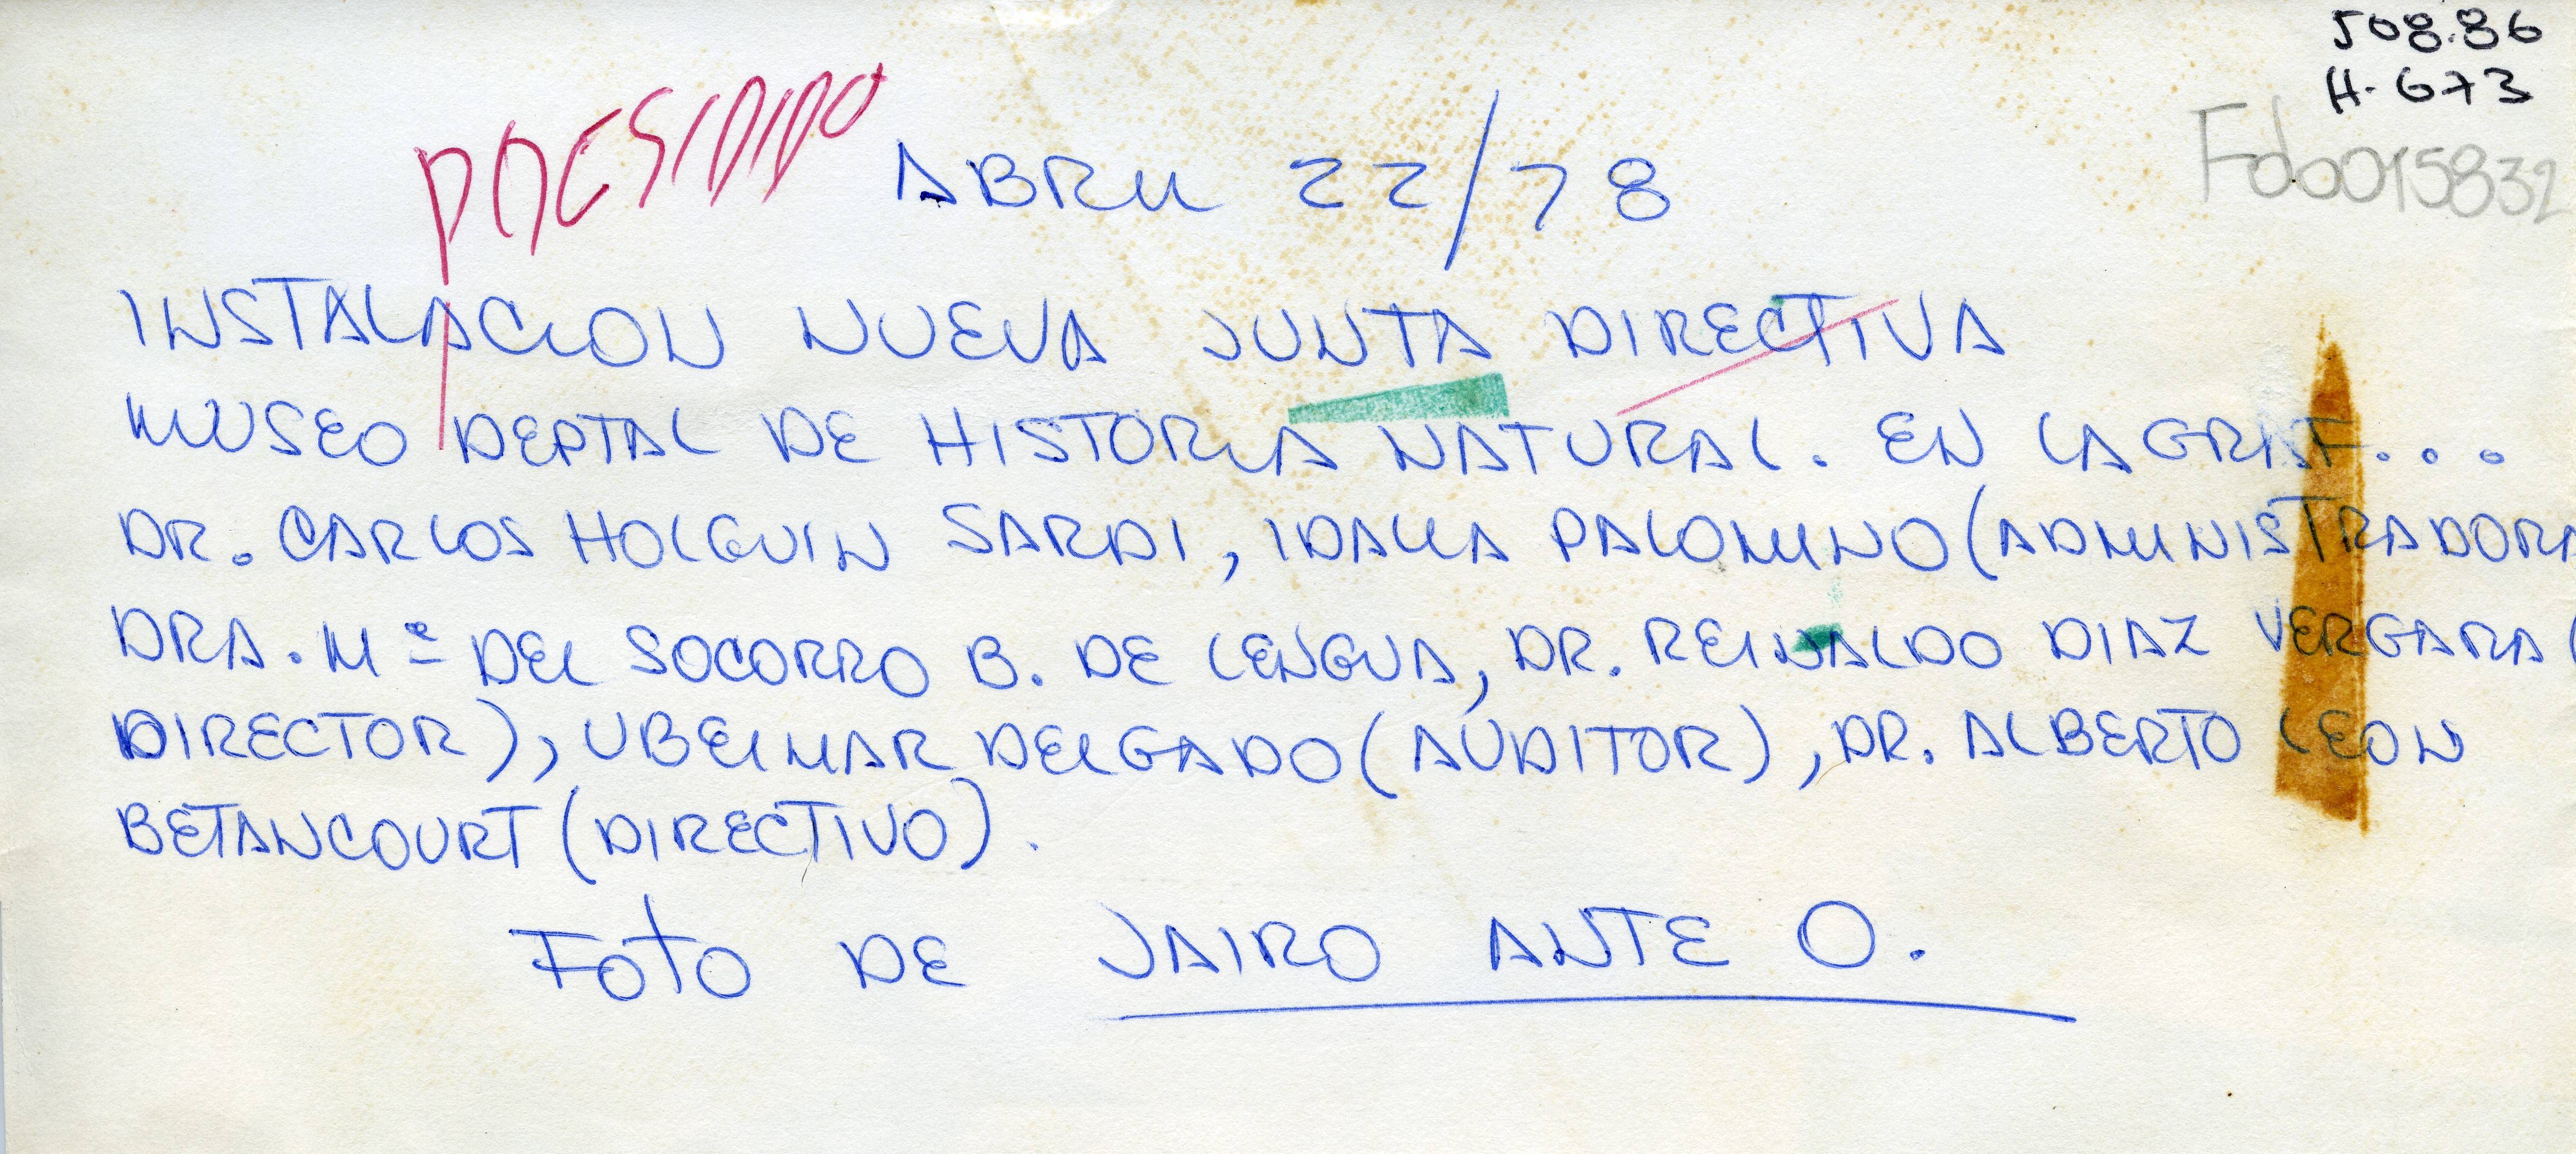 508.86
H-673
Fdo015832
ABRIL 22/78
INSTALACION NUEVA JUNTA DIRECTIVA
MUSEO DEPTAL DE HISTORIA NATURAL. EN LA GRAF...
DR. CARLOS HOLGUIN SARDI, IDALIA PALOMINO (ADMINISTRADORA
DRA. Mª DEL SOCORRO B. DE LENGUA, DR. REINALDO DIAZ VERGARA (
DIRECTOR), UBEIMAR DELGADO (AUDITOR), DR. ALBERTO LEON
BETANCOURT (DIRECTIVO).
FOTO DE JAIRO ANTE O.